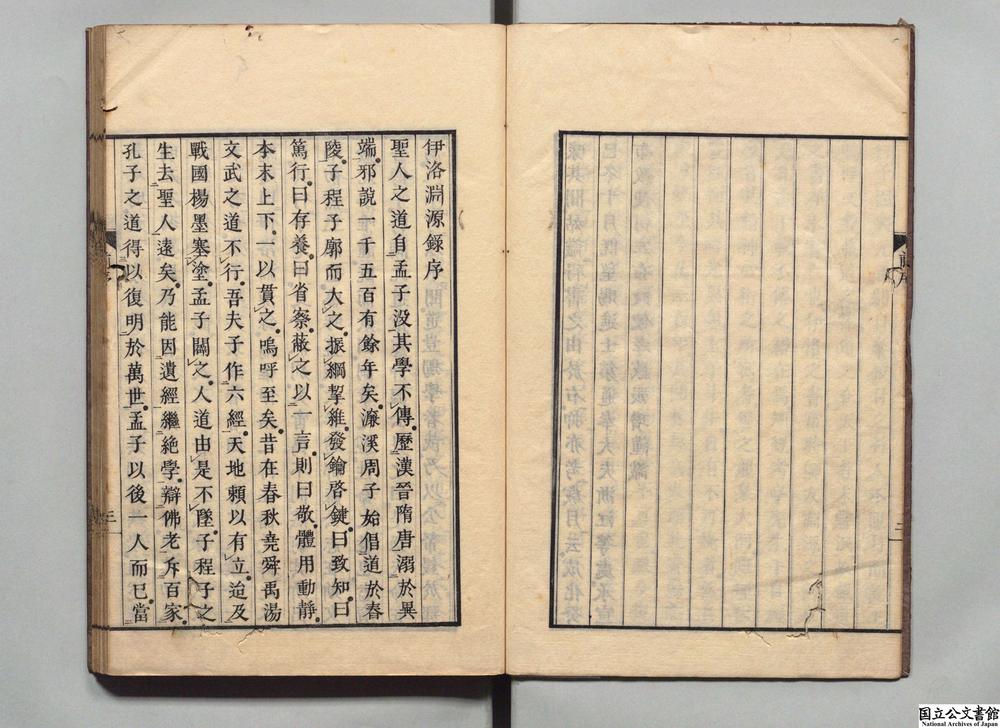 伊洛淵源錄序
聖人之道自孟子沒其學不傳歷漢晉隋唐溺於異
端邪說一千五百有餘年矣濂溪周子始倡道於舂
陵子程子廓而大之振綱挈維發鑰啓鍵曰致知曰
篤行曰存養曰省察蔽之以一言則曰敬體用動靜
本末上下一以貫之嗚呼至矣昔在春秋堯舜禹湯
文武之道不行吾夫子作六經天地賴以有立迨及
戰國楊墨塞塗孟子闢之人道由是不墜子程子之
生去聖人遠矣乃能因遺經繼絕學辯佛老斥百家
孔子之道得以復明於萬世孟子以後一人而已當
三
二
国立公文書館
National Archives of Japan